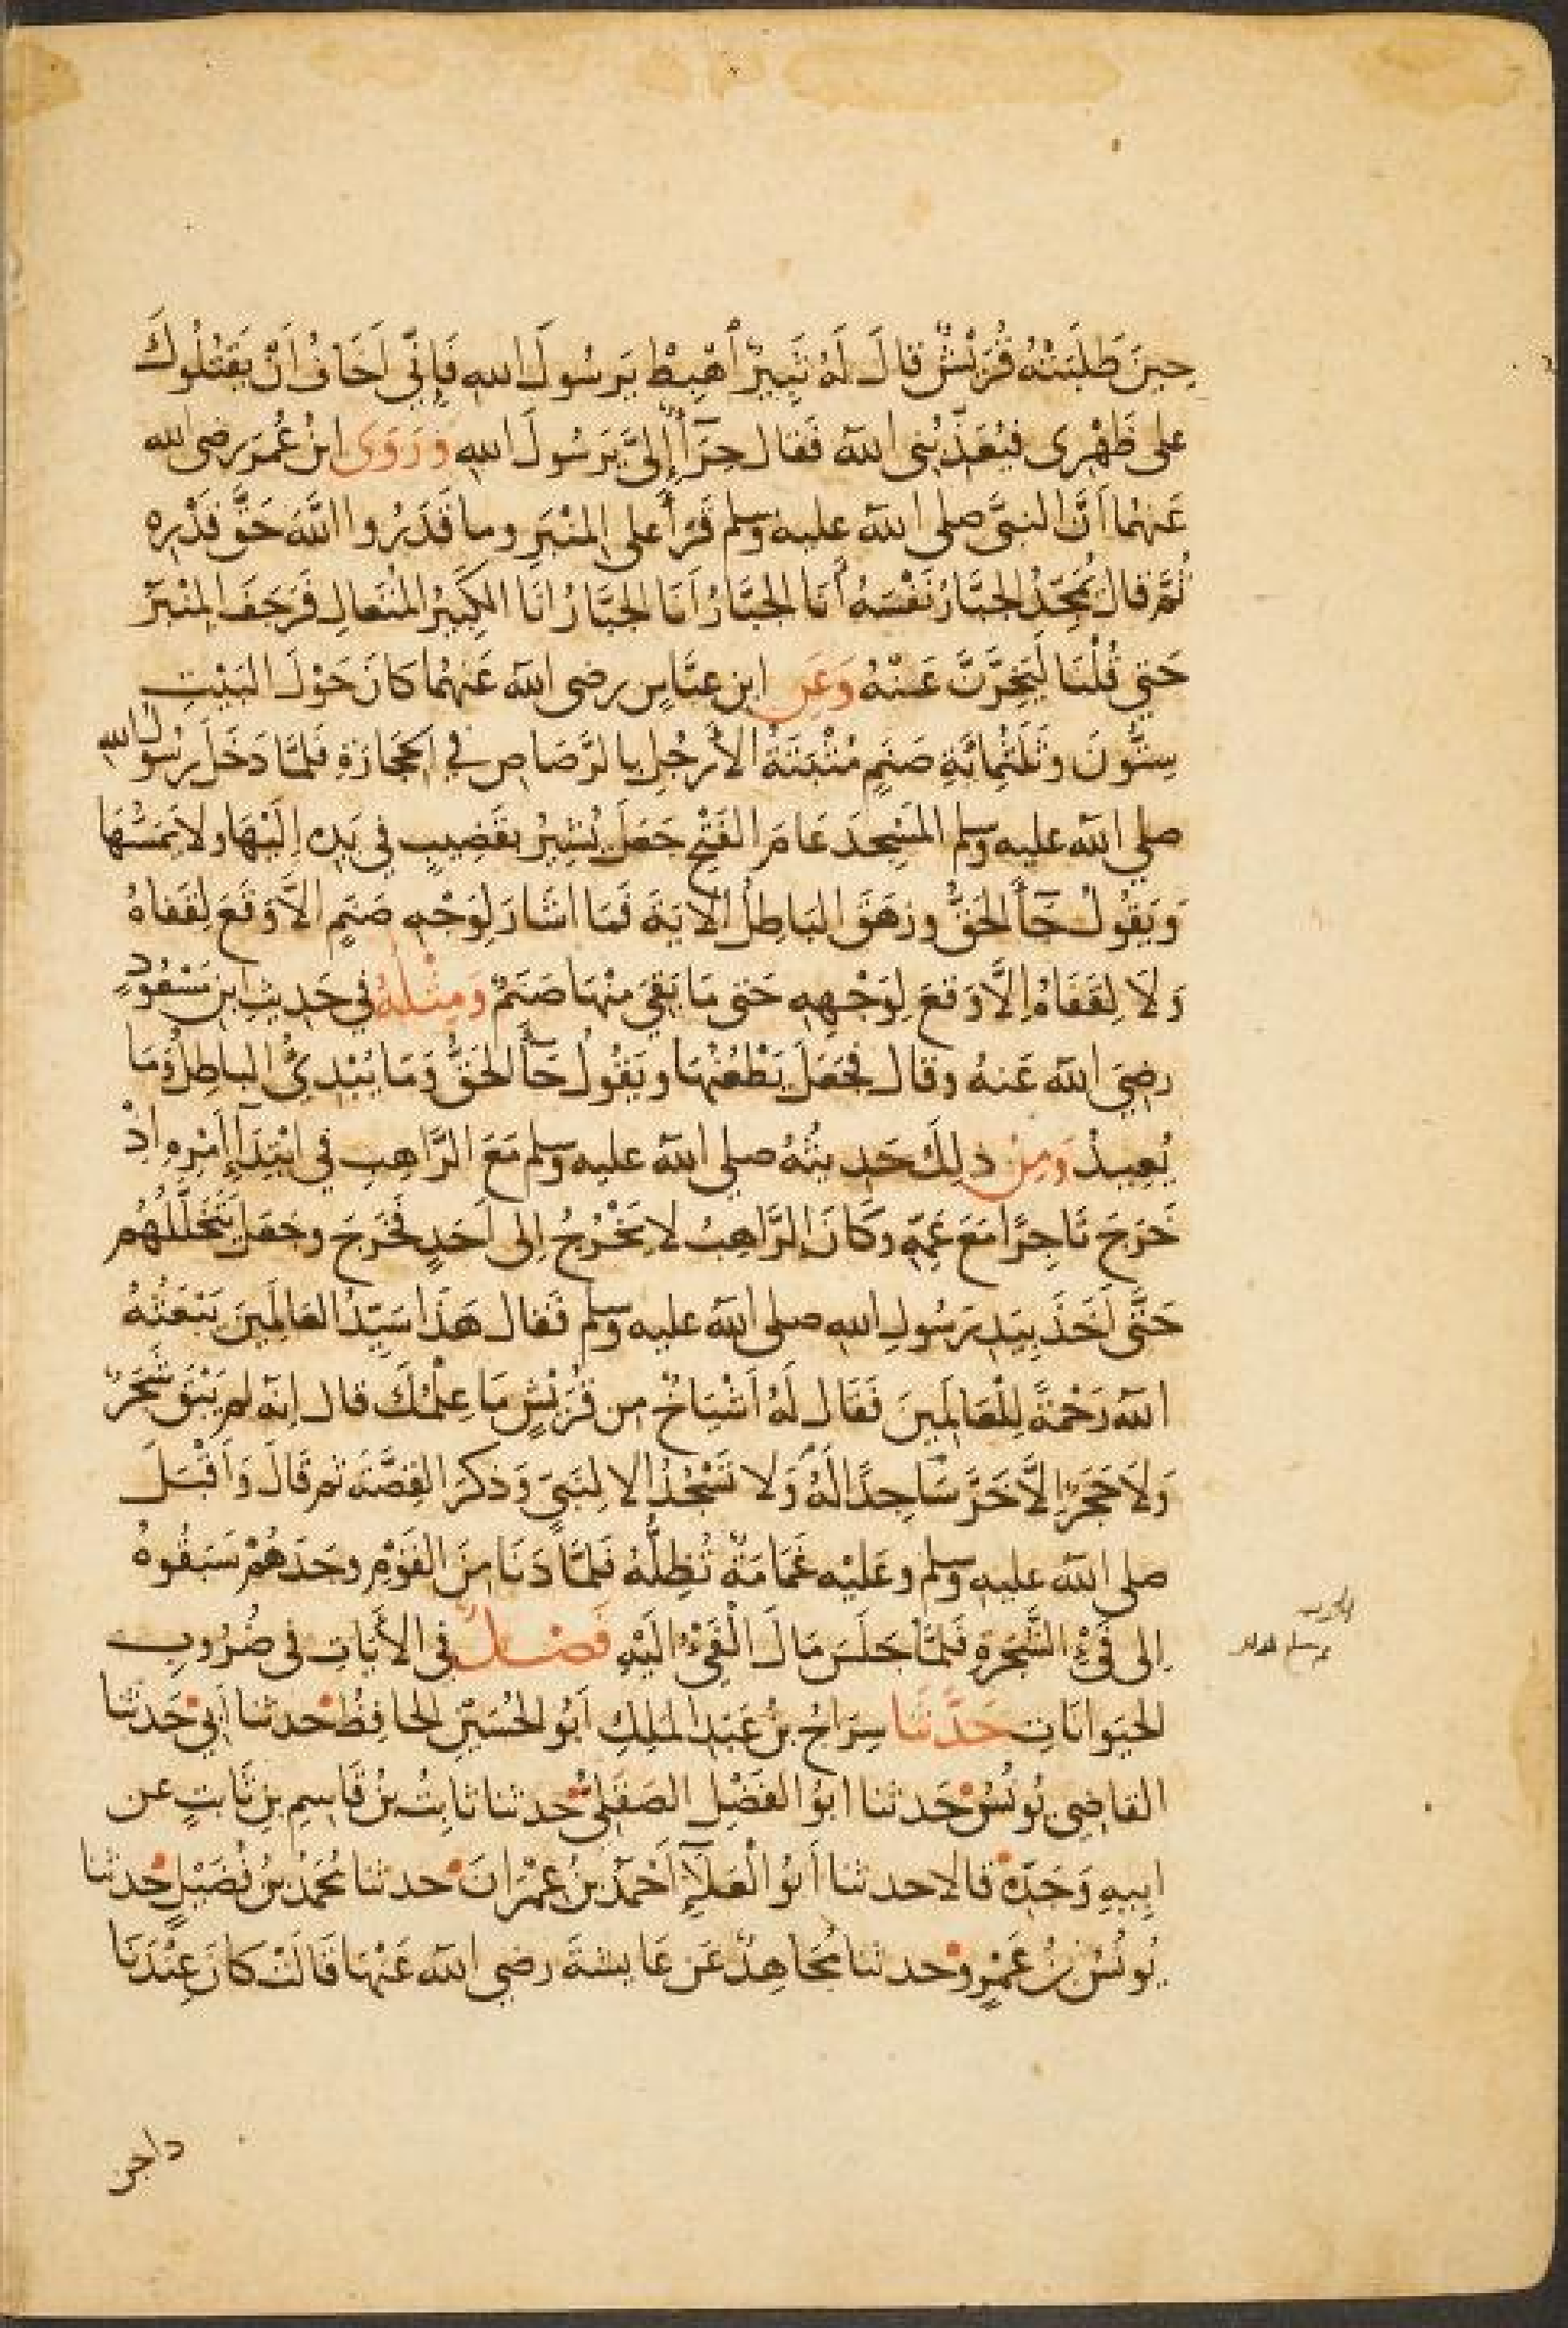 حِينَ طَلَبَتْهُ قُرَيْشٌ قالَ لَهُ ثَبِيرٌ اُهْبِطْ يَرَسُولَ اللهِ فَإِنِّي اَخَافُ اَنْ يَقْتُلُوكَ
على ظَهْرِى فيُعَذِّبُنِى اللهُ فَقال حِرَآءٌ إِلَيَّ يَرَسُولَ اللهِ وَرَوَى ابنُ عُمَرَ رضى الله
عَنهُما اَنَّ النبيَّ صلى الله عليه وسلم قَرَأَ على المِنْبَرِ وما قَدَرُوا اللهَ حَقَّ قَدْرِهِ
ثُمَّ قال يُمَجِّدُ الجبَّارُ نَفْسَهُ أَنَا الجَبَّارُ اَنَا الجَبَّارُ انَا الكَبِيرُ المُتَعالِ فَرَجَفَ المِنْبَرُ
حَتى قُلْنَا لَيَخِرَّنَّ عَنْهُ وَعَنِ ابنِ عبَّاسٍ رضى الله عَنهُما كانَ حَوْلَ البَيْتِ
سِتُّونَ وثَلَثُمِائَةِ صَنَمٍ مُثْبَتَةُ الأَرْجُلِ بالرَّصَاصِ فِي الحِجَارَةِ فَلمَّا دَخَلَ رَسُولُ اللهِ
صلى الله عليه وسلم المَسْجِدَ عَامَ الفَتْحِ جَعَلَ يُشِيرُ بقَضِيبٍ في يَدِهِ اِلَيْهَا ولا يَمَسُّهَا
وَيَقُولُ جَآءَ الحَقُّ وزَهَقَ البَاطِلُ الآيَةَ فَمَا اشَارَ لِوَجْهِ صَنَمٍ الاَّ وَقَعَ لِقَفاهُ
وَلاَ لِقَفَاهُ اِلاَّ وَقَعَ لِوَجْهِهِ حَتى مَا بَقِيَ مِنْهَا صَنَمٌ وَمِثْلُهُ في حَدِيثِ ابنِ مَسْعُودٍ
رضِيَ الله عَنهُ وقال فجَعَلَ يَطْعُنُهَا ويَقُولُ جَآءَ الحَقُّ وَمَا يُبْدِئُ الباطِلُ وَمَا
يُعِيدُ وَمِنْ ذلِكَ حَدِيثُهُ صلى الله عليه وسلم مَعَ الرَّاهِبِ في ابْتِدَآءِ اَمْرِهِ اِذْ
خَرَجَ تَاجِرًا مَعَ عَمِّهِ وكَانَ الرَّاهِبُ لا يَخْرُجُ اِلى اَحَدٍ فَخَرَجَ وجَعَلَ يَتَخَلَّلُهُم
حَتَّى اَخَذَ بِيَدِ رَسُولِ اللهِ صلى الله عليه وسلم فَقال هَذَا سَيِّدُ العَالَمِينَ يَبْعَثُهُ
اللهُ رَحْمَةً لِلْعَالَمِينَ فَقَال لَهُ اَشْيَاخٌ مِن قُرَيْشٍ مَا عِلْمُكَ قال اِنَّهُ لم يَبْقَ شَجَرٌ
وَلاَ حَجَرٌ اِلاَّ خَرَّ سَاجِدًا لَهُ وَلا تَسْجُدُ اِلا لِنَبيٍّ وَذكَرَ القِصَّةَ ثم قَالَ وَأَقْبَلَ
صلى الله عليه وسلم وعَلَيْهِ غَمَامَةٌ تُظِلُّهُ فَلمَّا دَنَا مِنَ القَوْمِ وجَدَهُمْ سَبَقُوهُ
اِلى فَيْءِ الشَّجَرَةِ فَلمَّا جَلَسَ مَالَ الْفَيْءُ اِلَيْهِ فَصْلٌ في الأَيَاتِ فى ضُرُوبِ
الحيَوانَاتِ حَدَّثَنَا سِرَاجُ بنُ عَبْدِ المَلِكِ اَبُو الحُسَيْنِ الحافِظُ حدثنا اَبِي حَدثنا
القاضِى يُونُسُ حَدثنا ابُو الفَضْلِ الصَّقَلِيُّ حدثنا ثابِتُ بنُ قَاسِمِ بنِ ثَابتٍ عن
ابِيهِ وَجَدِّهِ قالا حدثنا اَبُو الْعَلَآءِ اَحْمَدُ بنُ عِمْرَانَ حدثنا مُحَمَّدُ بنُ فُضَيْلٍ حدثنا
يُونُسُ بنُ عَمْرٍو حدثنا مُجَاهِدٌ عَن عَايشةَ رضي الله عَنْهَا قَالَتْ كانَ عِنْدَنَا
داجن